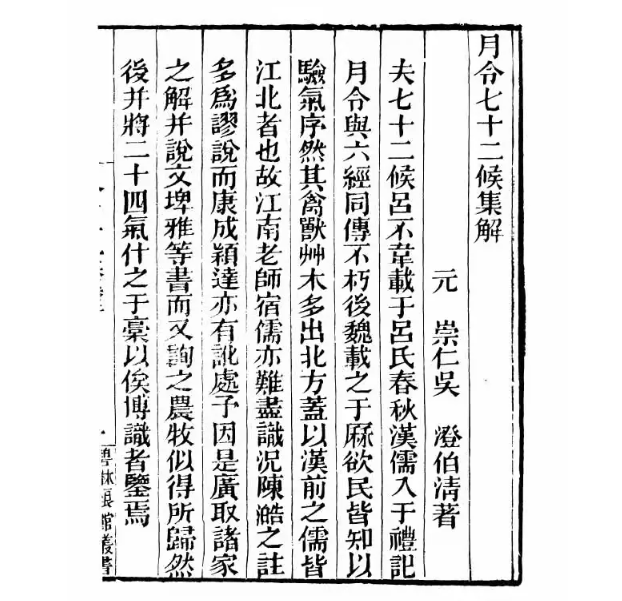 月令七十二候集解
元　崇仁吳　澄伯清著
夫七十二候呂不韋載于呂氏春秋漢儒入于禮記
月令與六經同傳不朽後魏載之于厤欲民皆知以
驗氣序然其禽獸艸木多出北方蓋以漢前之儒皆
江北者也故江南老師宿儒亦難盡識況陳澔之註
多爲謬說而康成穎達亦有訛處予因是廣取諸家
之解并說文埤雅等書而又詢之農牧似得所歸然
後并將二十四氣什之于稾以俟博識者鑒焉